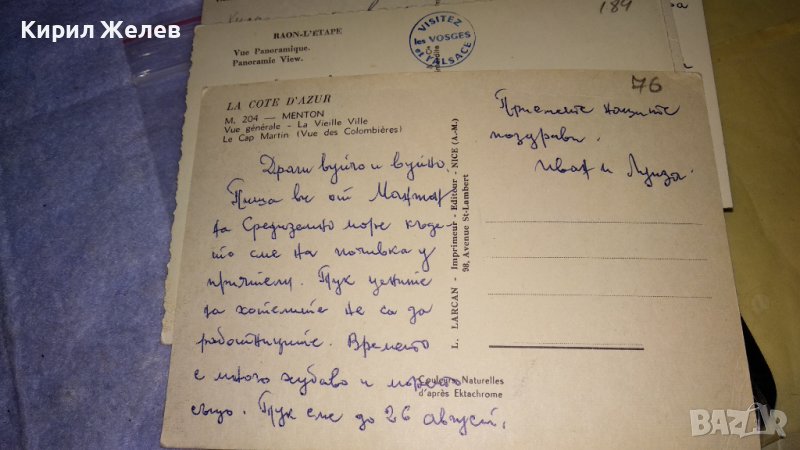 Кирил Желев
184
RAON-L'ETAPE
Vue Panoramique.
Panoramic View.
VISITEZ
les VOSGES
et l'ALSACE
76
LA COTE D'AZUR
M. 204 — MENTON
Vue générale - La Vieille Ville
Le Cap Martin (Vue des Colombières)
Драги вуйчо и вуйно.
Пиша ве от Мантон
на Средиземно море къде-
то сме на почивка у
приятели. Тук цените
на хотелите не са за
работниците. Времето
е много хубаво и морето
също. Тук сме до 26 август.
Couleurs Naturelles
d'après Ektachrome
L. LARCAN - Imprimeur - Editeur - NICE (A.-M.)
98, Avenue St-Lambert
Приемете нашите
поздрави.
Иван и Луиза.
BAZAR
bg